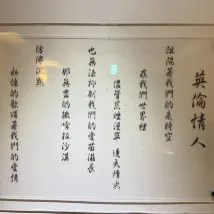 英倫情人
阻隔著我們的是時空
在我們世界裡
儘管荒煙漫草 連天烽火
也無法抑制我們的愛苗滋長
那無盡的撒哈拉沙漠
彷彿依然
壯懷的歌頌著我們的愛情